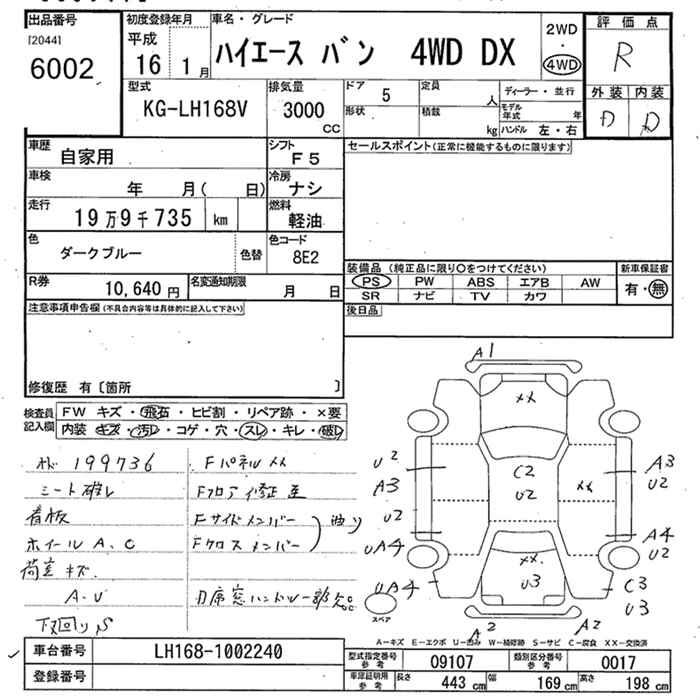 出品番号 初度登録年月 車名・グレード 2WD 評価点
[2044] 平成 ・
6002 16 1月 ハイエース バン 4WD DX 4WD R
型式 排気量 ドア 5 定員 人 ディーラー・並行 外装 内装
KG-LH168V 3000 CC 形状 積載 kg モデル年式 年 D D
ハンドル 左・右
車歴 自家用 シフト F5 セールスポイント(正常に機能するものに限ります)
車検 年 月( 日) 冷房 ナシ
走行 19万9千735 km 燃料 軽油
色 ダークブルー 色替 色コード 8E2
装備品 (純正品に限り○をつけてください) 新車保証書
R券 10,640円 名変通知期限 月 日 PS PW ABS エアB AW 有・無
SR ナビ TV カワ
注意事項申告欄(不具合内容等は具体的に記入して下さい) 後日品
修復歴 有〔箇所 〕
検査員記入欄 FW キズ・飛石・ヒビ割・リペア跡・×要
内装 キズ・汚レ・コゲ・穴・スレ・キレ・破レ
199736 Fパネル XX
シート破レ Fフロア 修正
看板 Fサイドメンバー
ホイール A、C Fクロスメンバー
荷室 キズ
A・U
下回りS
A1
XX
U2 A3
A3 C2 U2
U2 U2 XX
A4
UA4 U2
XX
UA4 U3 C3
U3
スペア
A2 A2
A-キズ E-エクボ U-凹み W-補修跡 S-サビ C-腐食 XX-交換済
車台番号 LH168-1002240 型式指定番号 参考 09107 類別区分番号 参考 0017
登録番号 車庫証明用 参考 長さ 443 cm 幅 169 cm 高さ 198 cm